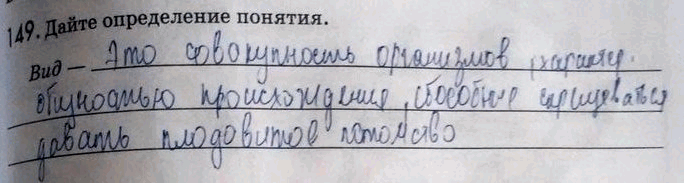 149. Дайте определение понятия.
Вид — Это совокупность организмов, характер.
общностью происхождения, способные скрещиваться
давать плодовитое потомство